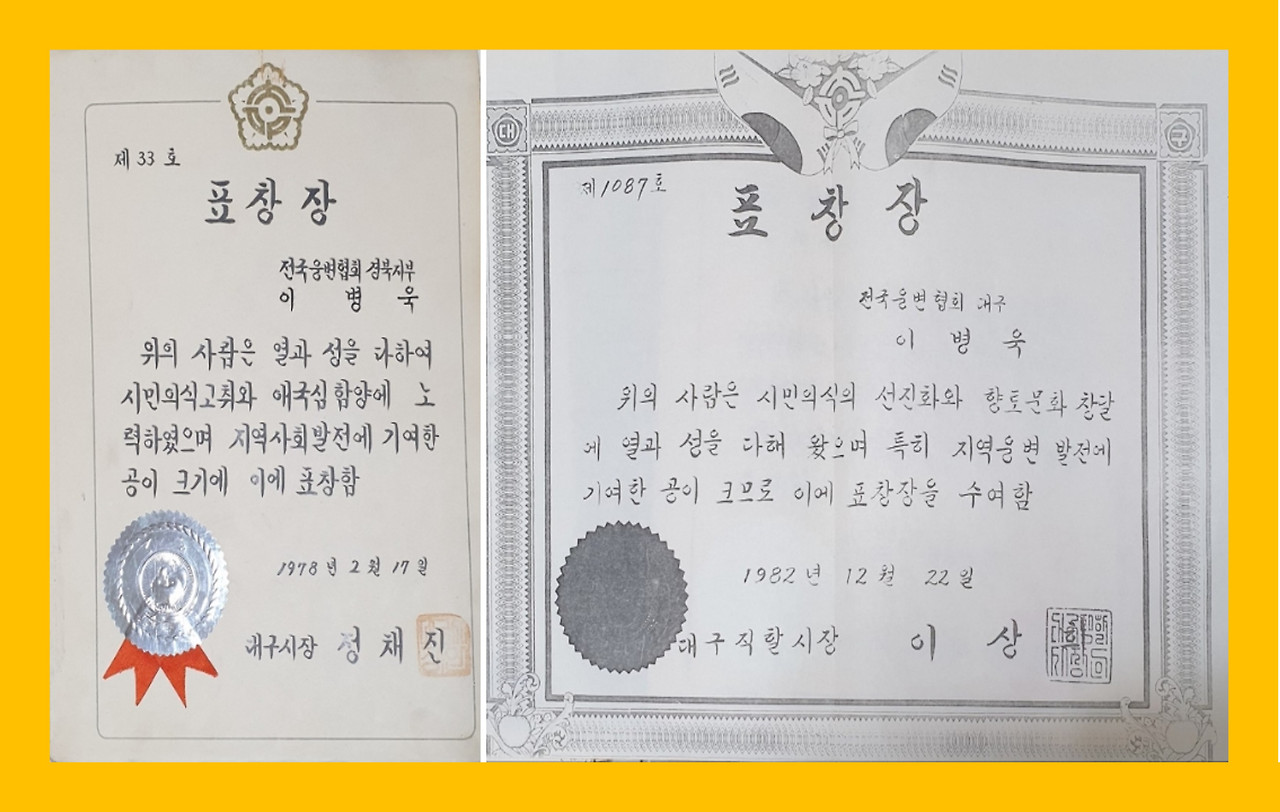 제 33 호
표창장
전국웅변협회 경북지부
이 병 욱
위의 사람은 열과 성을 다하여
시민의식고취와 애국심함양에 노
력하였으며 지역사회발전에 기여한
공이 크기에 이에 표창함
1978 년 2 월 17 일
대구시장 정 채 진
대 구
제1087호
표창장
전국웅변협회 대구
이 병 욱
위의 사람은 시민의식의 선진화와 향토문화 창달
에 열과 성을 다해 왔으며 특히 지역웅변 발전에
기여한 공이 크므로 이에 표창장을 수여함
1982 년 12 월 22 일
대구직할시장 이 상